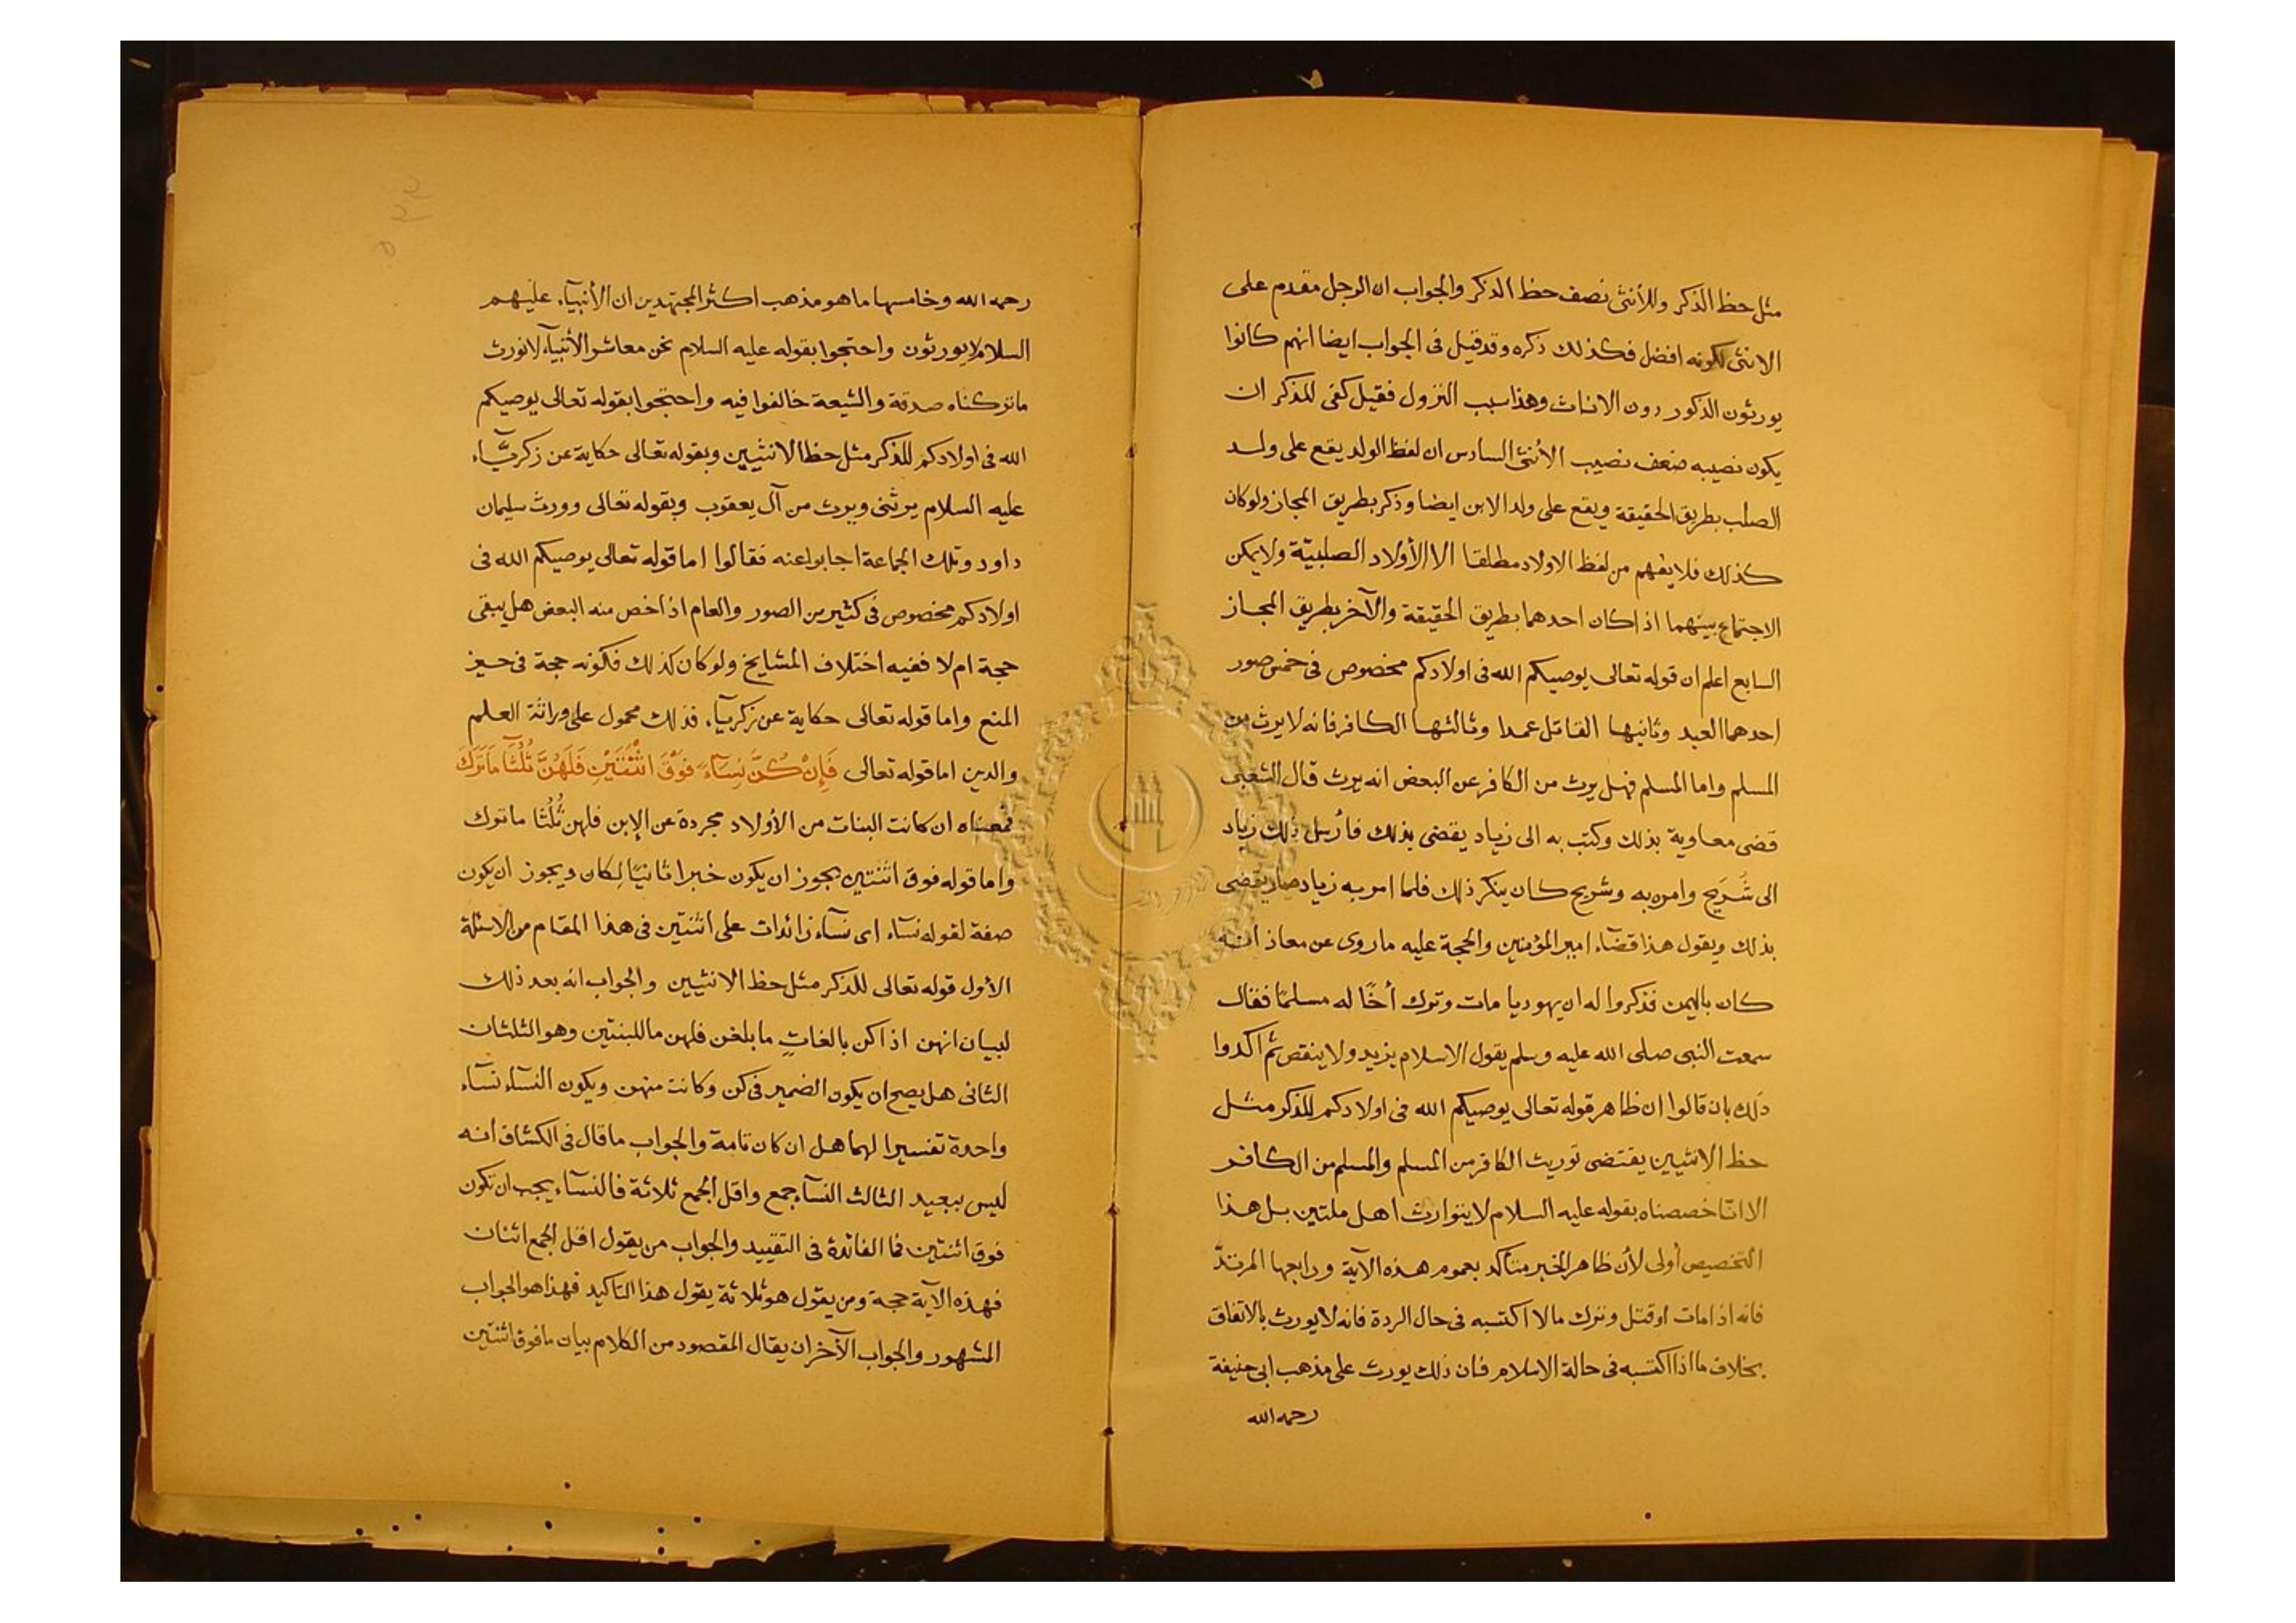 مثل حظ الذكر وللأنثى نصف حظ الذكر والجواب ان الرجل مقدم على
الانثى لكونه افضل فكذلك ذكره وقد قيل فى الجواب ايضا انهم كانوا
يورثون الذكور دون الاناث وهذا سبب النزول فقيل كفى للذكر ان
يكون نصيبه ضعف نصيب الأنثى السادس ان لفظ الولد يقع على ولد
الصلب بطريق الحقيقة ويقع على ولد الابن ايضا وذكر بطريق المجاز ولو كان
كذلك فلا يفهم من لفظ الاولاد مطلقا الا الأولاد الصلبيّة ولا يمكن
الاجتماع بينهما اذا كان احدهما بطريق الحقيقة والآخر بطريق المجاز
السابع اعلم ان قوله تعالى يوصيكم الله فى اولادكم مخصوص فى خمس صور
احدهما العبد وثانيها القاتل عمدا وثالثها الكافر فانه لا يرث من
المسلم واما المسلم فهل يرث من الكافر عن البعض انه يرث قال الشعبى
قضى معاوية بذلك وكتب به الى زياد يقضى بذلك فأرسل ذلك زياد
الى شُرَيح وامره به وشريح كان ينكر ذلك فلما امر به زياد صار يقضى
بذلك ويقول هذا قضآء امير المؤمنين والحجة عليه ما روى عن معاذ انه
كان باليمن فذكروا له ان يهوديا مات وترك أخًا له مسلمًا فقال
سمعت النبى صلى الله عليه وسلم يقول الاسلام يزيد ولا ينقص ثم اكدوا
ذلك بان قالوا ان ظاهر قوله تعالى يوصيكم الله فى اولادكم للذكر مثل
حظ الانثيين يقتضى توريث الكافر من المسلم والمسلم من الكافر
الا انّا خصصناه بقوله عليه السلام لا يتوارث اهل ملتين بل هذا
التخصيص أولى لأن ظاهر الخبر متأكد بعموم هذه الآية ورابعها المرتدّ
فانه اذا مات او قتل وترك مالا اكتسبه فى حال الردة فانه لا يورث بالاتفاق
بخلاف ما اذا اكتسبه فى حالة الاسلام فان ذلك يورث على مذهب ابى حنيفة
رحمه الله
رحمه الله وخامسها ما هو مذهب اكثر المجتهدين ان الأنبيآء عليهم
السلام لا يورثون واحتجوا بقوله عليه السلام نحن معاشر الأنبيآء لا نورث
ما تركناه صدقة والشيعة خالفوا فيه واحتجوا بقوله تعالى يوصيكم
الله فى اولادكم للذكر مثل حظ الانثيين وبقوله تعالى حكاية عن زكريّآء
عليه السلام يرثنى ويرث من آل يعقوب وبقوله تعالى وورث سليمان
داود وتلك الجماعة اجابوا عنه فقالوا اما قوله تعالى يوصيكم الله فى
اولادكم مخصوص فى كثير من الصور والعام اذا خص منه البعض هل يبقى
حجة ام لا ففيه اختلاف المشايخ ولو كان كذلك فكونه حجة فى حيز
المنع واما قوله تعالى حكاية عن زكريآء فذلك محمول على وراثة العلم
والدين اما قوله تعالى فَإِنْ كُنَّ نِسَآءً فَوْقَ اثْنَتَيْنِ فَلَهُنَّ ثُلُثَا مَا تَرَكَ
فمعناه ان كانت البنات من الأولاد مجردة عن الإبن فلهن ثُلُثا ما ترك
واما قوله فوق اثنتين يجوز ان يكون خبرا ثانيًا لكان ويجوز ان يكون
صفة لقوله نسآء اى نسآء زائدات على اثنتين فى هذا المقام من الاسئلة
الأول قوله تعالى للذكر مثل حظ الانثيين والجواب انه بعد ذلك
لبيان انهن اذا كن بالغاتٍ ما بلغن فلهن ما للبنتين وهو الثلثان
الثانى هل يصح ان يكون الضمير فى كن وكانت منهن ويكون النسآء نسآء
واحدة تفسيرا لهما هل ان كان تامة والجواب ما قال فى الكشاف انه
ليس ببعيد الثالث النسآء جمع واقل الجمع ثلاثة فالنسآء يجب ان تكون
فوق اثنتين فما الفائدة فى التقييد والجواب من يقول اقل الجمع اثنان
فهذه الآية حجة ومن يقول هو ثلاثة يقول هذا التاكيد فهذا هو الجواب
المشهور والجواب الآخر ان يقال المقصود من الكلام بيان ما فوق اثنتين